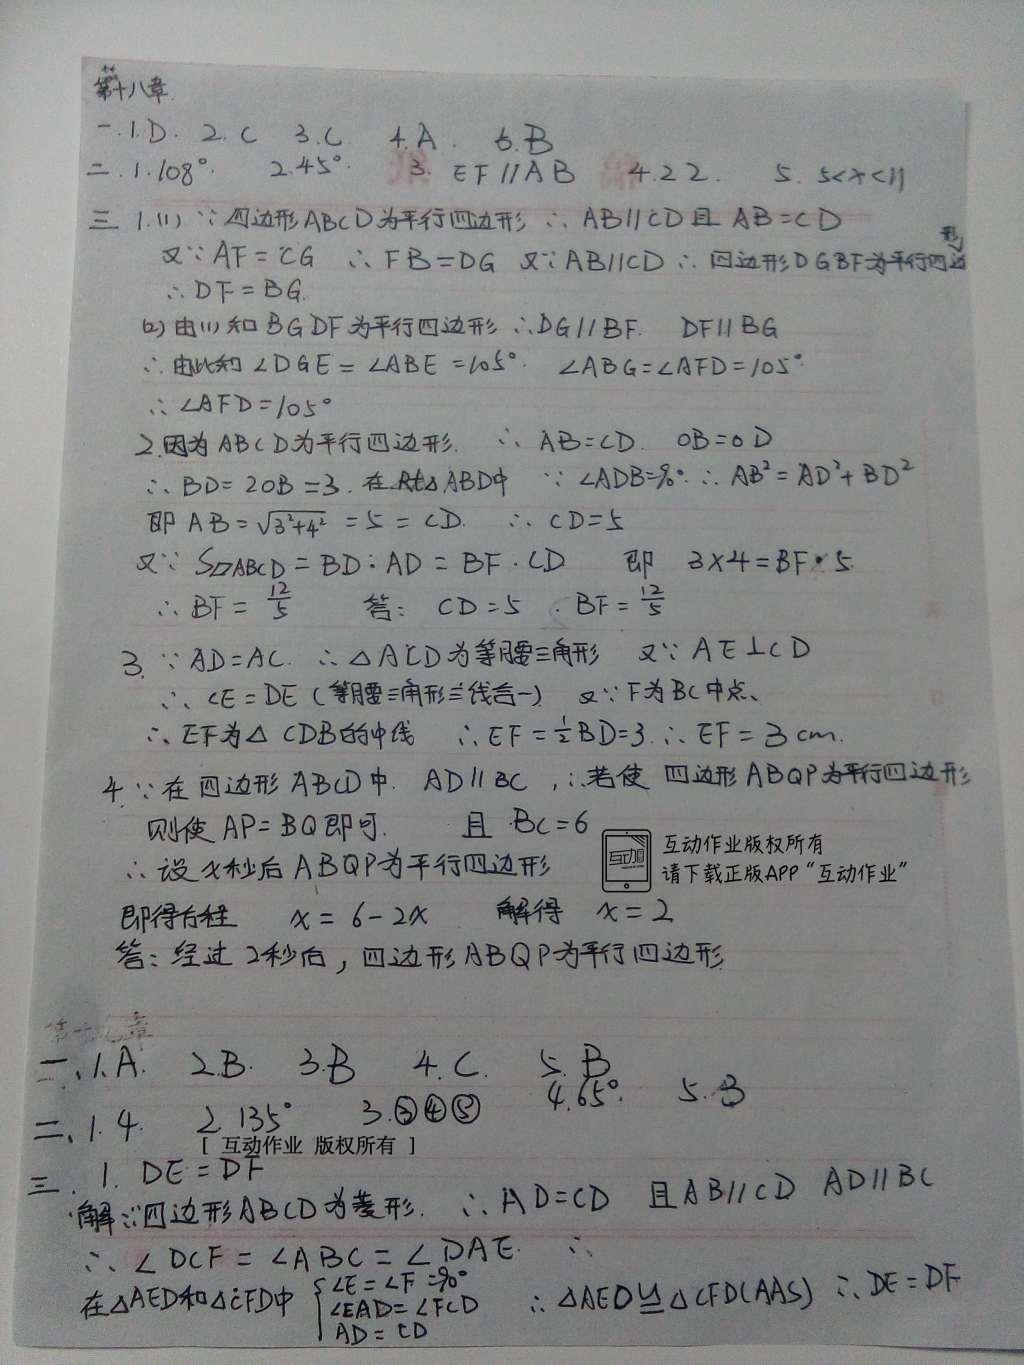 第十八章
一.1.D. 2.C 3.C 4.A. 6.B
二.1.108°. 2.45°. 3. EF//AB 4.22. 5. 5<x<11
三 1.(1) ∵四边形ABCD为平行四边形 ∴AB//CD且AB=CD
又∵AF=CG ∴FB=DG 又∵AB//CD ∴四边形DGBF为平行四边形
∴DF=BG.
(2)由(1)知BGDF为平行四边形 ∴DG//BF. DF//BG
∴由此知∠DGE=∠ABE=105°. ∠ABG=∠AFD=105°
∴∠AFD=105°
2.因为ABCD为平行四边形. ∴AB=CD. OB=OD
∴BD=2OB=3.在Rt△ABD中 ∵∠ADB=90°.∴AB²=AD²+BD²
即AB=√3²+4²=5=CD. ∴CD=5
又∵S▱ABCD=BD:AD=BF·CD 即 3×4=BF·5
∴BF=12/5 答: CD=5 .BF=12/5
3.∵AD=AC.∴△ACD为等腰三角形 又∵AE⊥CD
∴CE=DE(等腰三角形三线合一) 又∵F为BC中点、
∴EF为△CDB的中线 ∴EF=½BD=3.∴EF=3cm.
4.∵在四边形ABCD中. AD//BC,∴若使四边形ABQP为平行四边形
则使AP=BQ即可. 且BC=6
互动作业版权所有
请下载正版APP“互动作业”
∴设x秒后ABQP为平行四边形
即得方程 x=6-2x 解得 x=2
答:经过2秒后,四边形ABQP为平行四边形
第十九章
一、1.A. 2.B. 3.B 4.C. 5.B
二、1.4. 2.135° 3.③④⑤ 4.65°. 5.3
[ 互动作业 版权所有 ]
三. 1. DE=DF
解:∵四边形ABCD为菱形. ∴AD=CD 且AB//CD AD//BC
∴∠DCF=∠ABC=∠DAE. ∴
在△AED和△CFD中 {∠E=∠F=90° ∠EAD=∠FCD AD=CD ∴△AED≌△CFD(AAS) ∴DE=DF